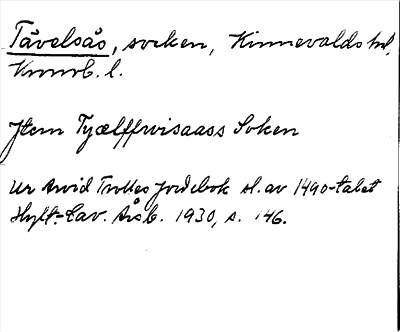 Tävelsås, socken, Kinnevalds hd,
Kronob. l.
Jtem Tyælffwisaass Soken
Ur Arvid Trolles Jordebok sl. av 1490-talet
Hylt.-Cav. Årsb. 1930, s. 146.